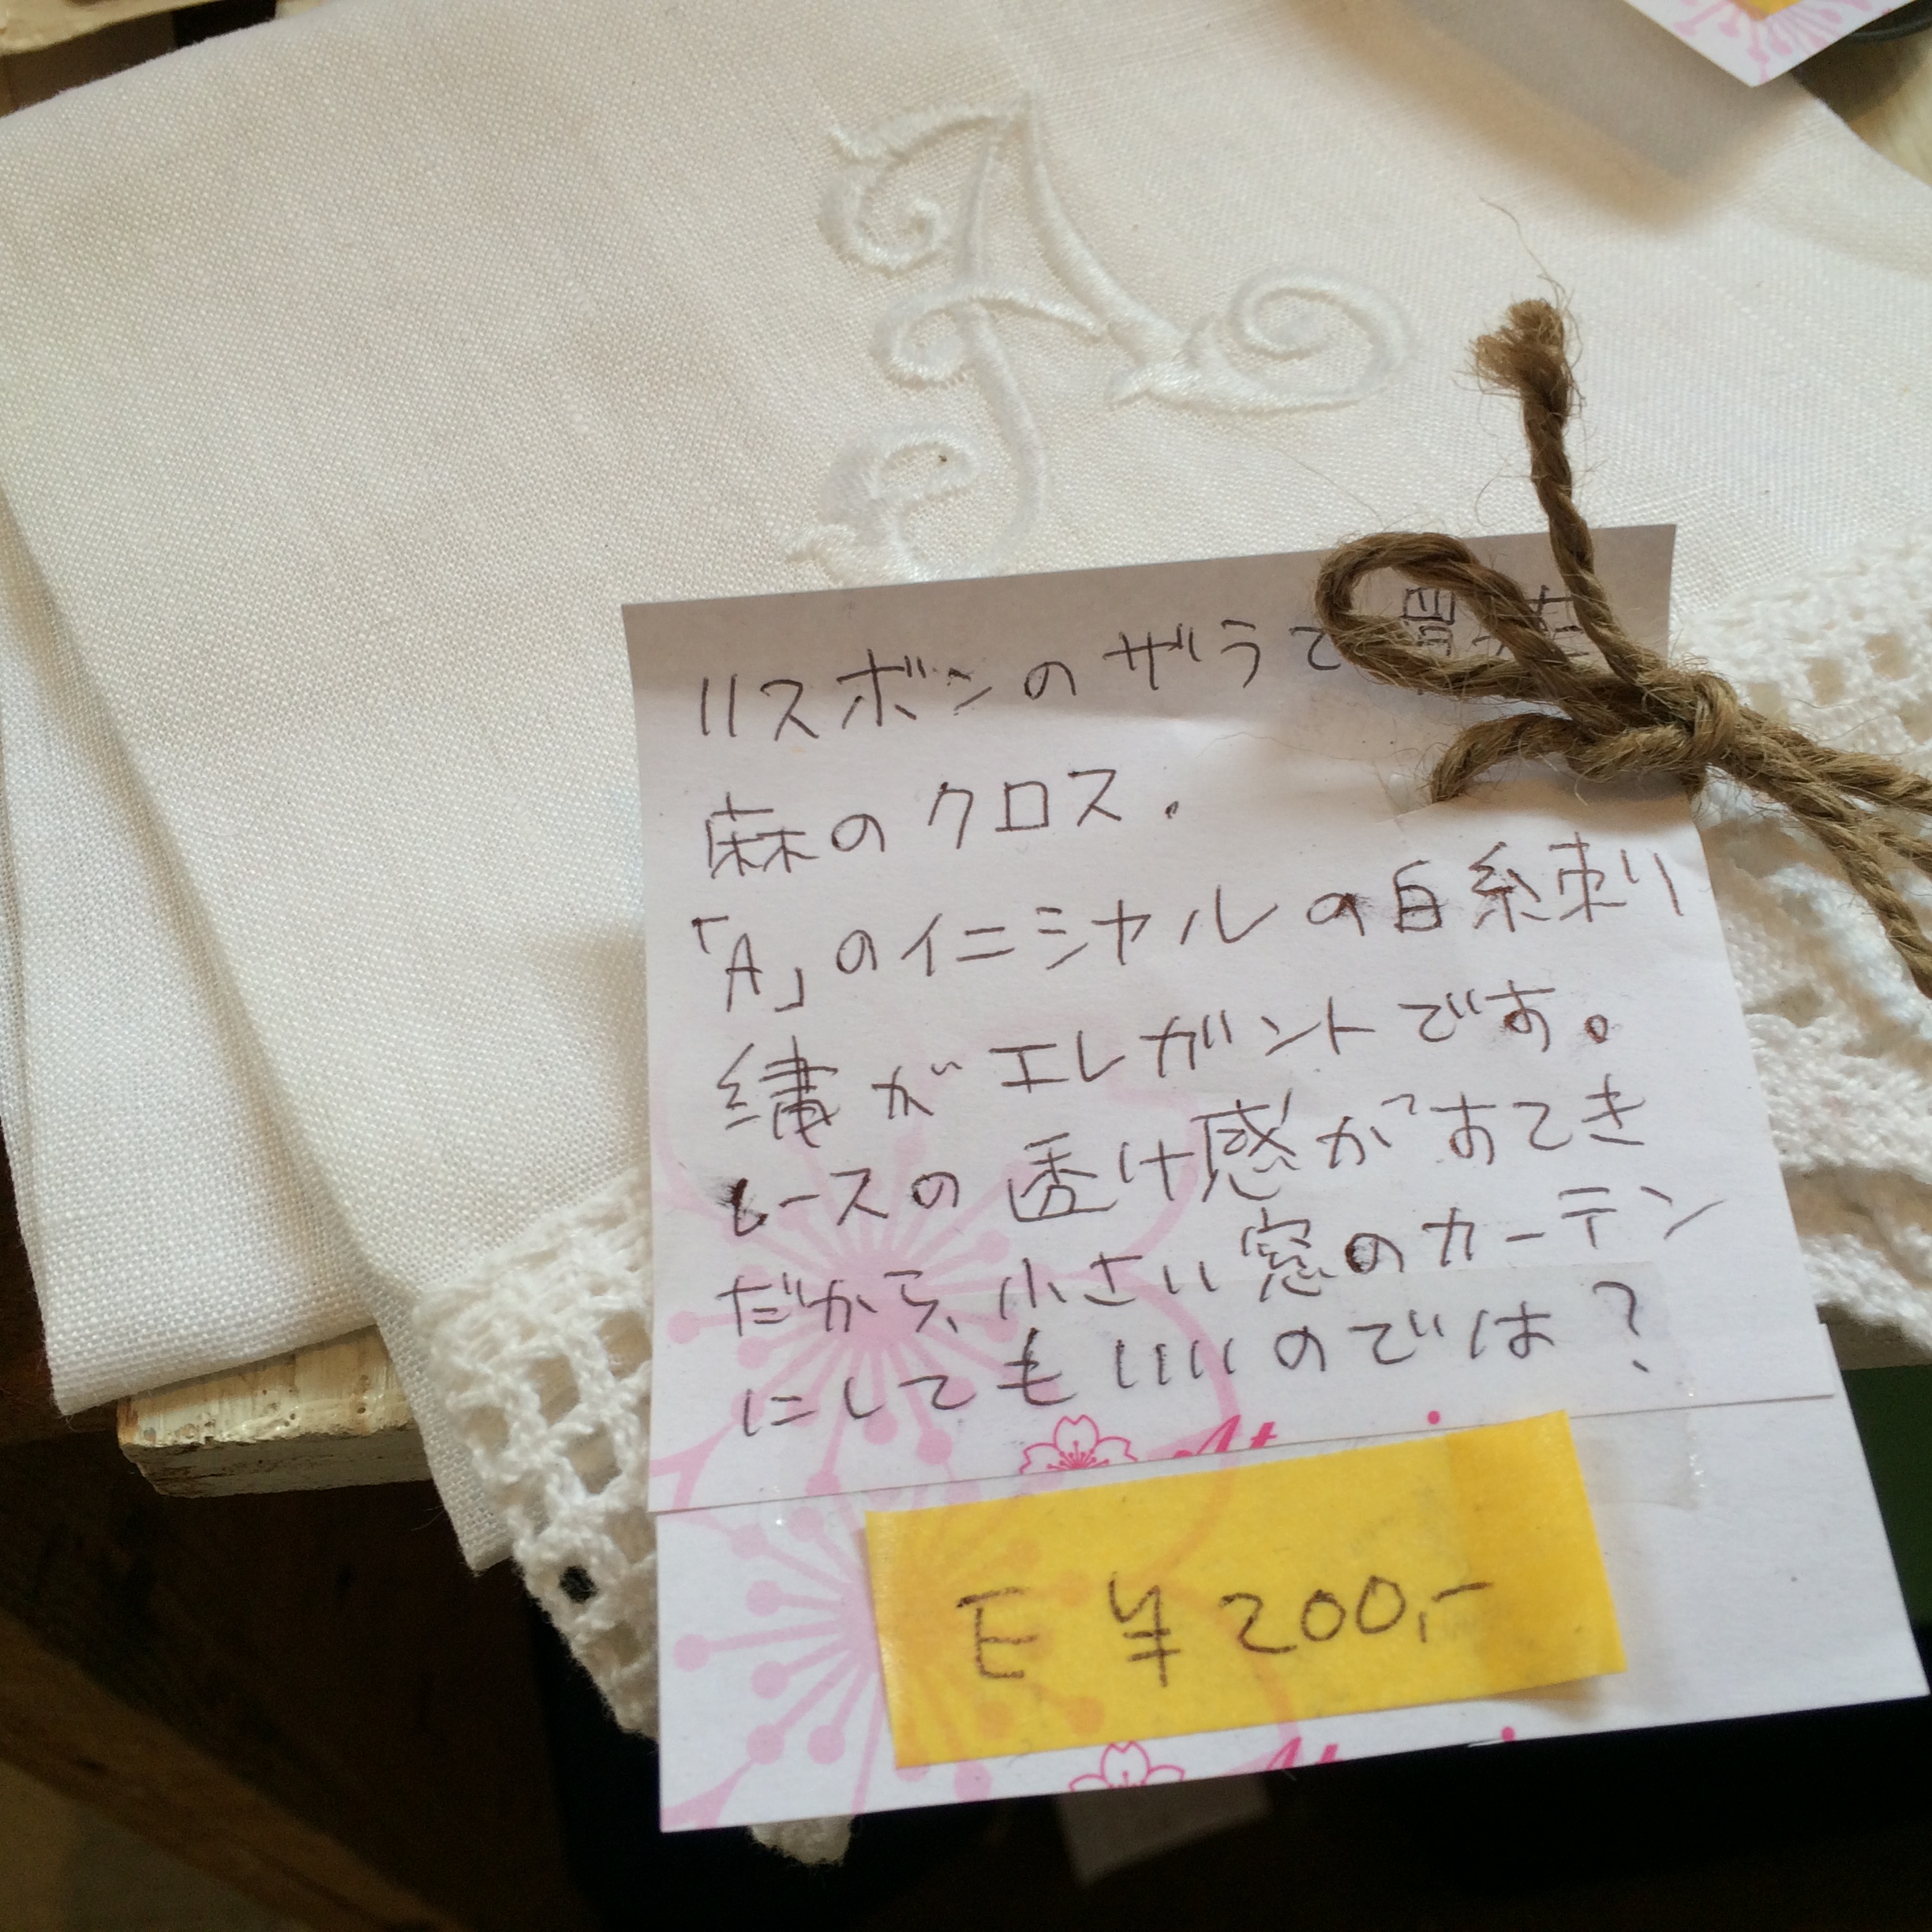 リスボンのザラで
麻のクロス.
「A」のイニシャルの白糸刺し
繍がエレガントです。
レースの透け感がすてき
だから、小さい窓のカーテン
にしてもいいのでは?
E ¥200,-